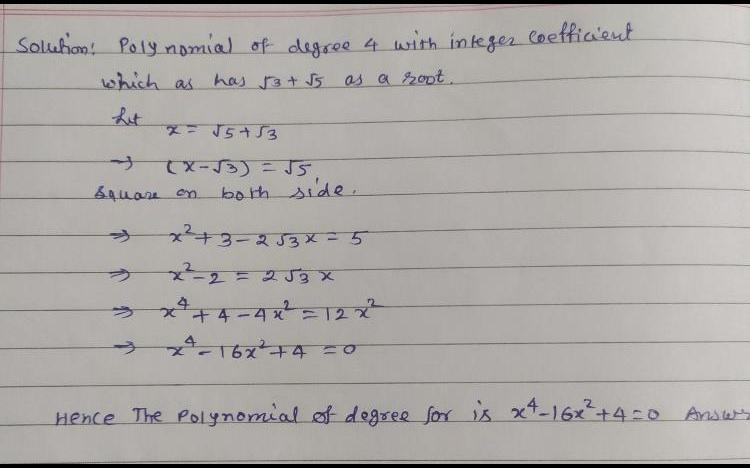 Solution: Polynomial of degree 4 with integer coefficient
which as has √3 + √5 as a root.
Let
x = √5 + √3
→ (x-√3) = √5
square on both side.
⇒ x² + 3 - 2√3x = 5
⇒ x² - 2 = 2√3 x
⇒ x⁴ + 4 - 4x² = 12x²
→ x⁴ - 16x² + 4 = 0
Hence The Polynomial of degree for is x⁴-16x²+4=0 Answer